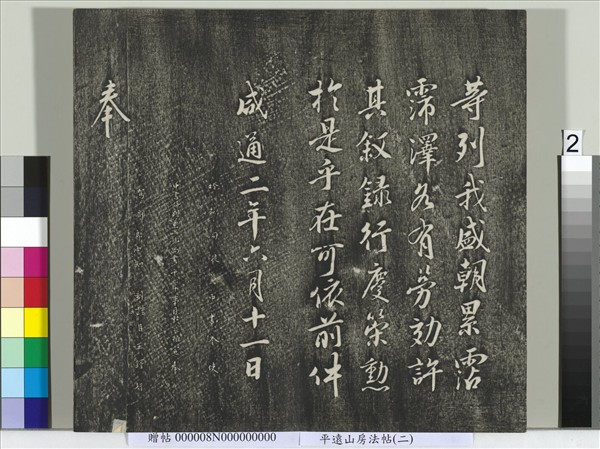 等列我盛朝累霑
霈澤各有勞効許
其叙録行慶策勲
於是乎在可依前件
咸通二年六月十一日
奉
2
贈帖 000008N000000000
平遠山房法帖(二)